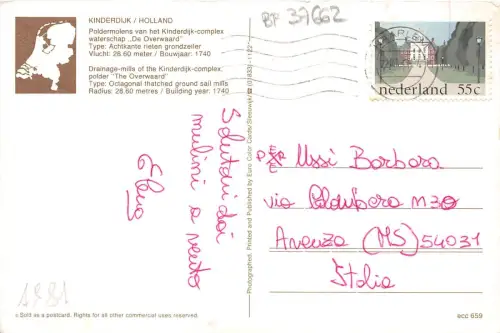 KINDERDIJK / HOLLAND
Poldermolens van het Kinderdijk-complex
waterschap „De Overwaard"
Type: Achtkante rieten grondzeiler
Vlucht: 28.60 meter / Bouwjaar: 1740
Drainage-mills of the Kinderdijk-complex,
polder "The Overwaard"
Type: Octagonal thatched ground sail mills
Radius: 28.60 metres / Building year: 1740
BP 37662
nederland 55c
Saluti dai
mulini a vento
Elena
Photographed, Printed and Published by Euro Color Cards/Sleeuwijk/
Ussi Barbara
via
Avenza (MS) 54031
Italia
1981
c Sold as a postcard. Rights for all other commercial uses reserved.
ecc 659